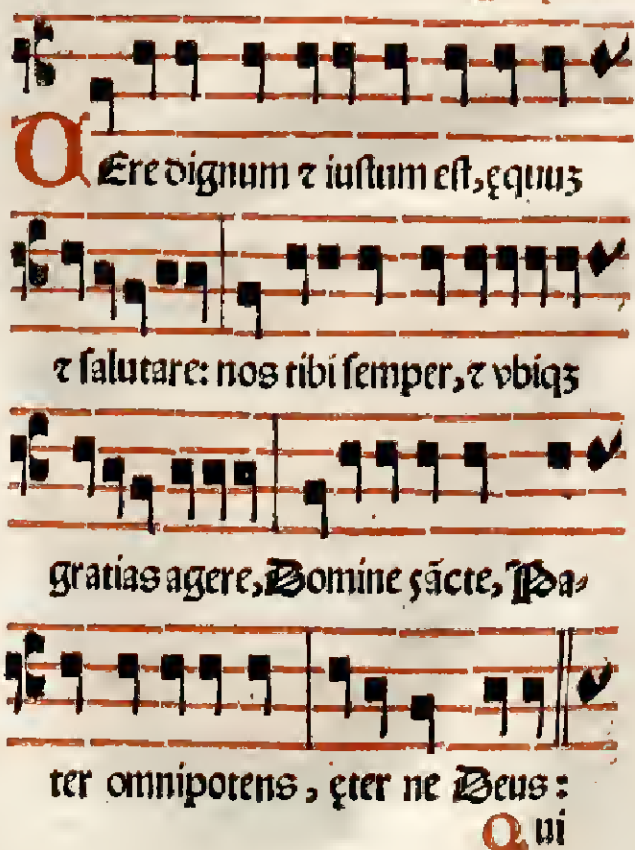 VEre dignum ⁊ iuſtum eſt, ęquuꝫ
⁊ ſalutare: nos tibi ſemper, ⁊ vbiqꝫ
gratias agere, Domine sācte, Pa-
ter omnipotens, ęter ne Deus:
Qui